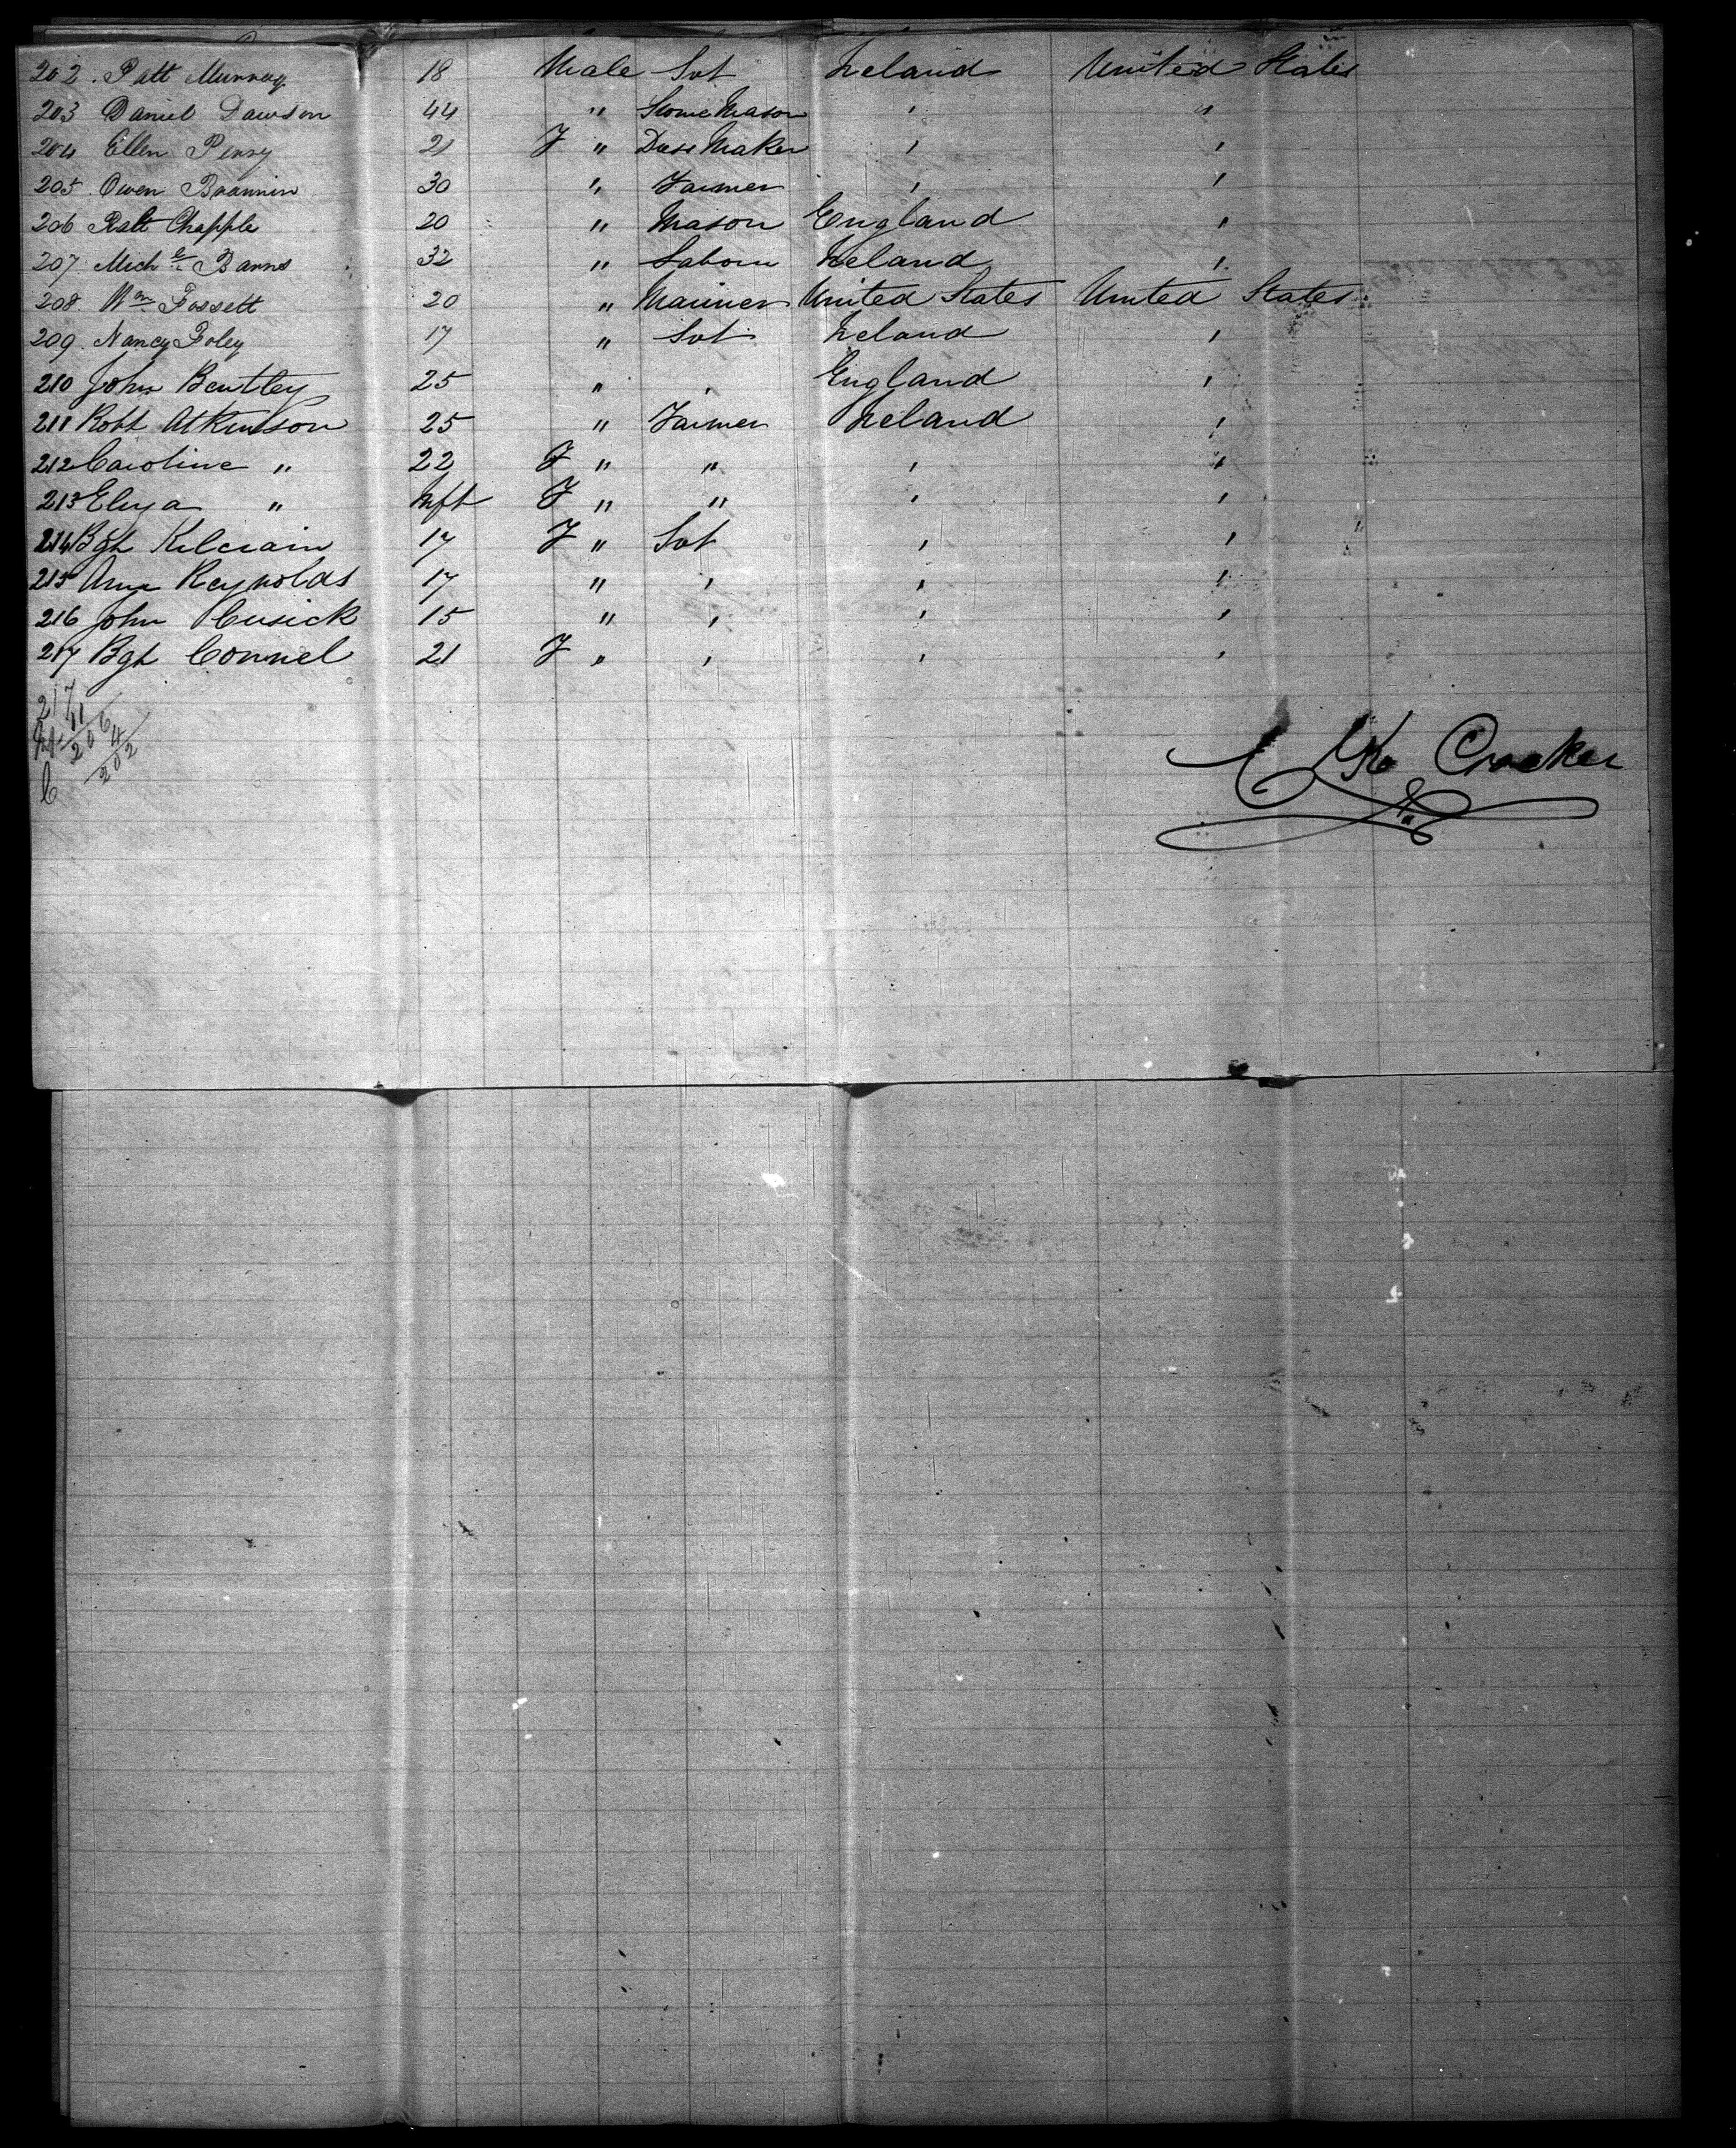 202. Patt Murray 18 Male Svt Ireland United States
203 Daniel Dawson 44 " Stone Mason ' "
204 Ellen Penny 21 F " Dress Maker ' '
205. Owen Brannin 30 " Farmer ' '
206 Patt Chapple 20 " Mason England '
207. Mich Banns 32 " Labour Ireland '
208. Wm Fossett 20 " Mariner United States United States.
209. Nancy Foley 17 " Svt Ireland '
210 John Bentley 25 " ' England '
211 Robt Atkinson 25 " Farmer Ireland '
212 Caroline " 22 F " " ' '
213 Eliza " Inft F " " ' '
214 Bgt Kilcrain 17 F " Svt ' '
215 Ann Reynolds 17 " ' ' '
216 John Cusick 15 " ' ' '
217 Bgt Connel 21 F " ' ' '
217
11
206
4
202
Crocker